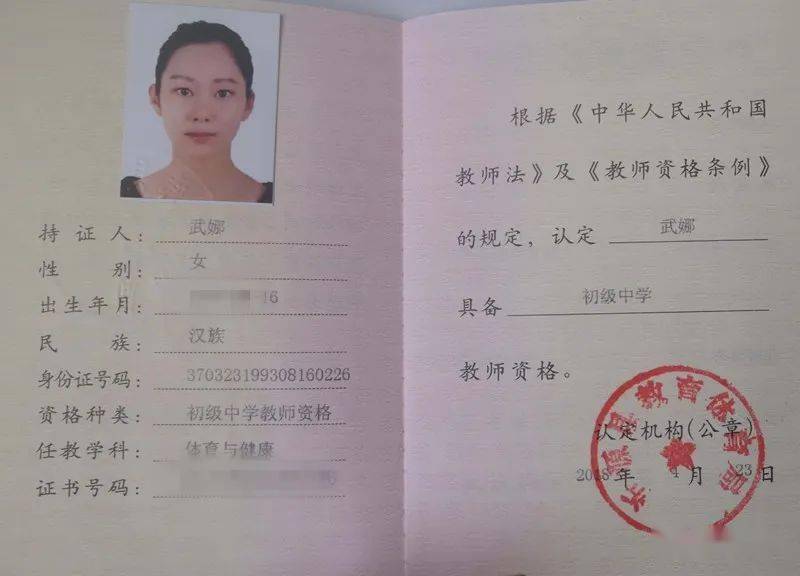 持证人：武娜
性别：女
出生年月：16
民族：汉族
身份证号码：370323199308160226
资格种类：初级中学教师资格
任教学科：体育与健康
证书号码：
根据《中华人民共和国
教师法》及《教师资格条例》
的规定，认定 武娜
具备 初级中学
教师资格。
认定机构(公章)
2018年 4月 23日
沂源县教育体育局